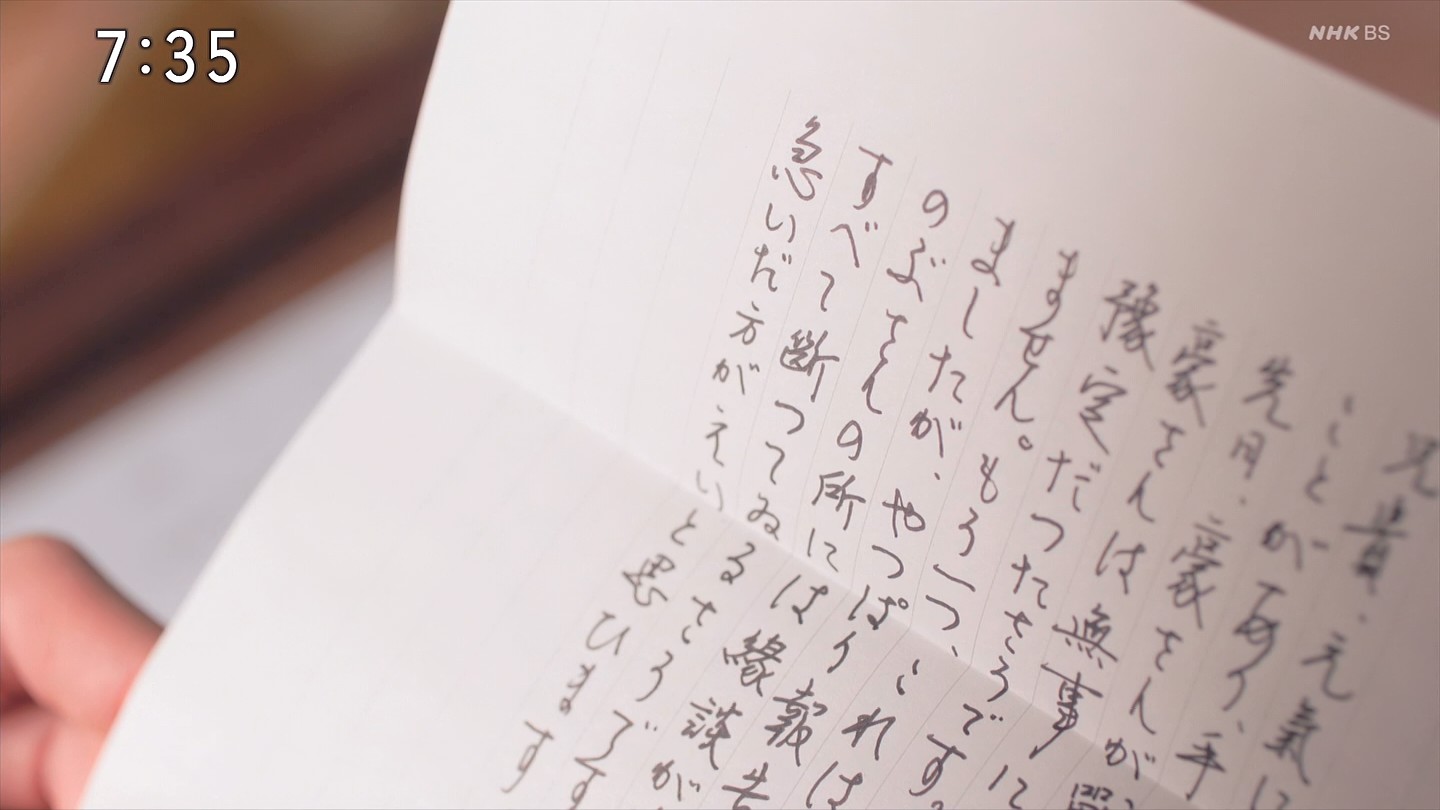 7:35
NHK BS
兄貴、元氣に
ことがあり、手
先月、豪さんが
豪さんは無事に
豫定だつたさうです。
ますせん。もう一つ、これは
ましたが、やつぱり報告
のぶさんの所には縁談が
すべて断つてゐるさうです
急いだ方がえいと思ひます